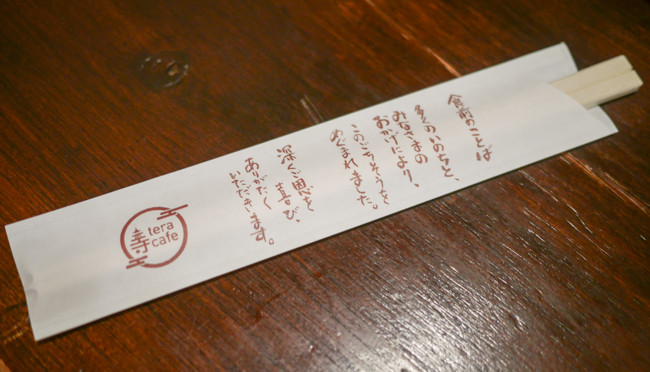 食前のことば
多くのいのちと、
みなさまの
おかげにより、
このごちそうを
めぐまれました。
深くご恩を
喜び、
ありがたく
いただきます。
寺
tera
cafe